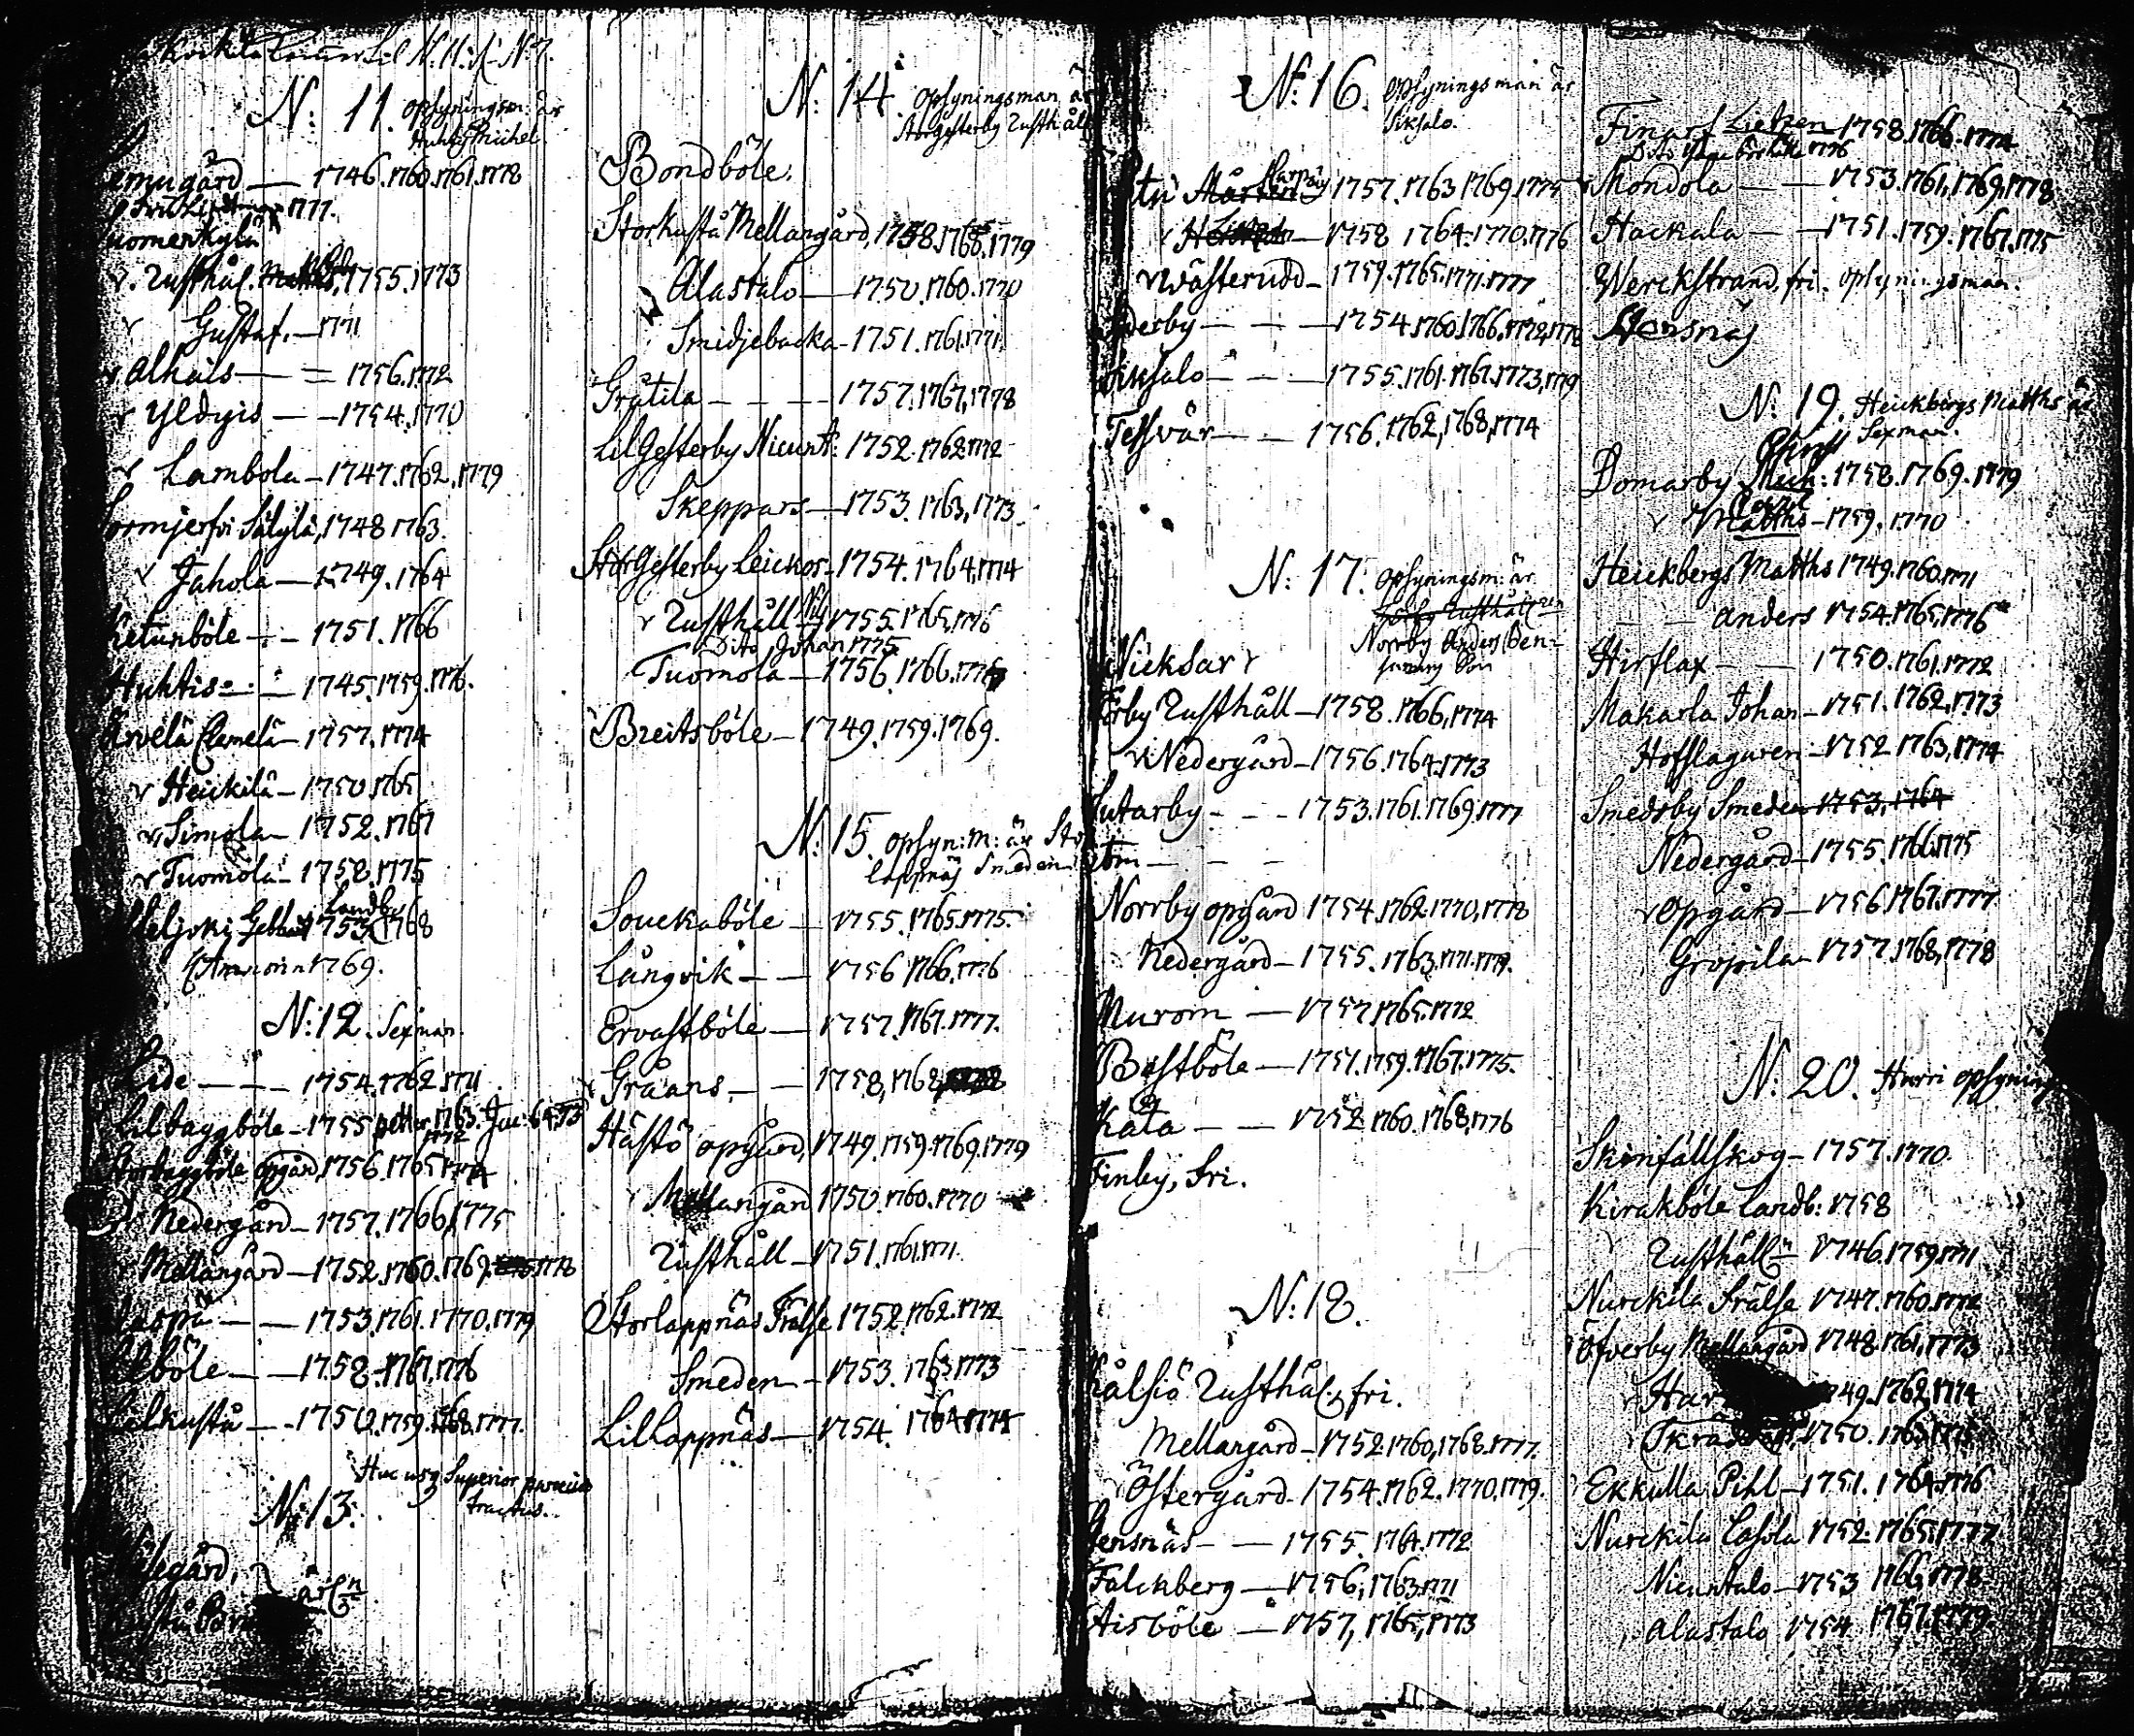 N: 11. opsyningsm: är
Huhtis Michel.
emugård — 1746.1760.1761.1778
1777.
uomenkylä
v. Rusthål. 1755.1773
v Gustaf. — 1771
v Alhais — = 1756.1772
v Yldyis — — 1754.1770
v Lambola — 1747.1762,1779
ormjerfvi Sälylä, 1748 1763.
v Jahola — 1749.1764
Ketunböle — — 1751.1766
Huhtis — 1745.1759.1776.
Ärvelä Clemelä — 1757.1774
v Heickilä — 1750.1765
v Simola — 1752.1767
v Tuomola — 1758.1775
Landb.
1753 1768
1769.
N: 12. Sexman.
ide — — — 1754.1762.1771
Lilbaggböle — 1755 petter 1763. Jac: 64.73
1772
Storbaggböle opgård, 1756.1765 1774
Nedergård — 1757.1766,1775
Mellangård — 1752.1760.1769. 1778
— — 1753.1761.1770.1779
böle — — 1758.1767.1776
Lilkustå — — 1750.1759.1768.1777.
Huc usq Superior paroeciæ
tractus.
N: 13.
gård,
N: 14. opsyningsman är
Storgesterby Rusthåll
Bondböle.
Storkustå Mellangård, 1758.1768.1779
Alastalo — 1750.1760.1770
Smidjebacka — 1751.1761.1771.
Gråtila — — — 1757.1767,1778
LilGesterby Nicu: 1752.1762.1772
Skeppars — 1753.1763,1773.
StorGesterby Leickos — 1754.1764,1774
v Rusthåll 1755.1765,1776
Dito Johan 1775
Tuomola — 1756.1766.
Breitsböle — 1749.1759.1769.
N: 15. opsyn: m: är Stor
lappnäs Smeden
Souckaböle — 1755.1765.1775.
Långvik — — 1756 1766.1776
Ervastböle — 1757.1767.1777.
Gråans — — 1758,1768,
Hästö opgård, 1749.1759.1769.1779
Mellangård 1750.1760.1770
Rusthåll — 1751.1761.1771.
Storlappnäs Frälse 1752.1762.1772
Smeden — 1753.1763.1773
Lillappnäs — 1754.1764.1774
N: 16. opsyningsman är
Siksalo.
1757.1763 1769.1775
— 1758 1764.1770.1776
v Wästerudd — 1759.1765.1771.1777
derby — — — 1754.1760.1766.1772,1778
Siksalo — — — 1755.1761.1767.1773,1779
Tessvär — — 1756.1762,1768,1774
N: 17. opsyningsm: är
Norrby Anders Ben-
Nicksar v
Forby Rusthåll — 1758.1766,1774
v Nedergård — 1756.1764.1773
Sutarby — — — 1753.1761.1769.1777
Norrby opgård 1754.1762.1770,1778
Nedergård — 1755.1763.1771.1779.
Murom — 1757.1765.1772
Bastböle — 1751.1759.1767.1775.
Kata — — 1752.1760.1768,1776
Finby, fri.
N: 18.
Kålsiö Rusthål, fri.
Mellangård — 1752.1760,1768.1777.
Östergård — 1754.1762.1770.1779.
ensnäs — — 1755.1764.1772
Falckberg — 1756,1763.1771
Aisböle — 1757,1765,1773
Finars 1758.1766.1774
1776
Mondola — — 1753.1761,1769,1778
Hackala — — 1751.1759.1767.1775
Werckstrand, fri. opsyningsman.
Stensnäs
N: 19. Heickbergs Matths är
Sexman.
Domarby Mich: 1758.1769.1779
v Matths — 1759.1770
Heickbergs Matths 1749.1760.1771
— — anders 1754.1765,1776
Hirslax — — 1750.1761.1772
Makarla Johan — 1751.1762,1773
Hofslagaren — 1752 1763,1774
Smedsby Smeden 1753,1764
Nedergård — 1755.1766.1775
v Opgård — 1756.1767.1777
Gropila — 1757.1768,1778
N: 20. Hurri opsyning
Skinfällskog — 1757.1770.
Kirakböle Landb: 1758
Rusthåll — 1746.1759.1771
Nurckila Frälse 1747.1760.1772
Öfverby Mellangård 1748.1761,1773
v Har 49.1762,1774
1750.1763.1775
Ekkulla Pihl — 1751.1764.1776
Nurckila Casola 1752.1765,1777
Nicuntalo — 1753 1766.1778
alastalo 1754 1767.1779.